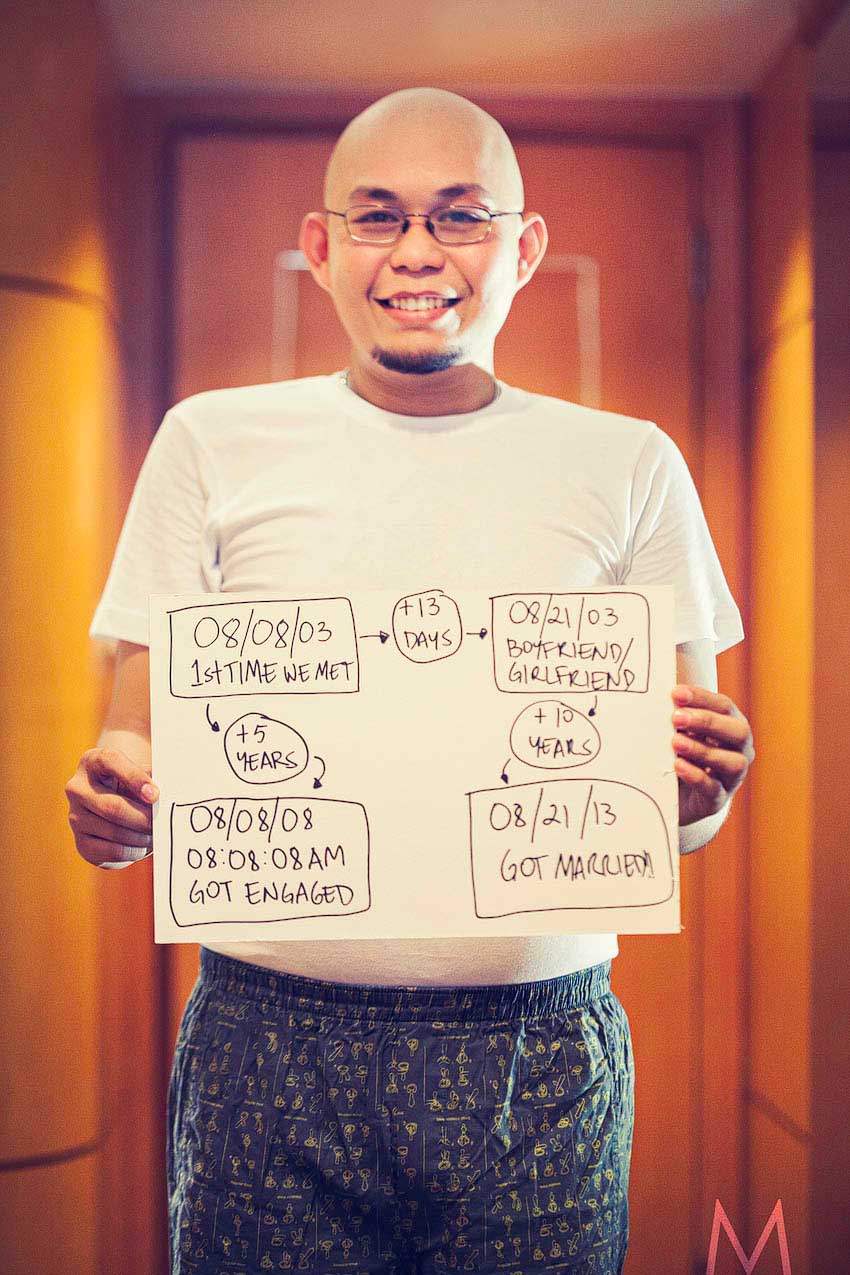 08/08/03
1st TIME WE MET
+13
DAYS
08/21/03
BOYFRIEND/
GIRLFRIEND
+5
YEARS
+10
YEARS
08/08/08
08:08:08 AM
GOT ENGAGED
08/21/13
GOT MARRIED!!
M